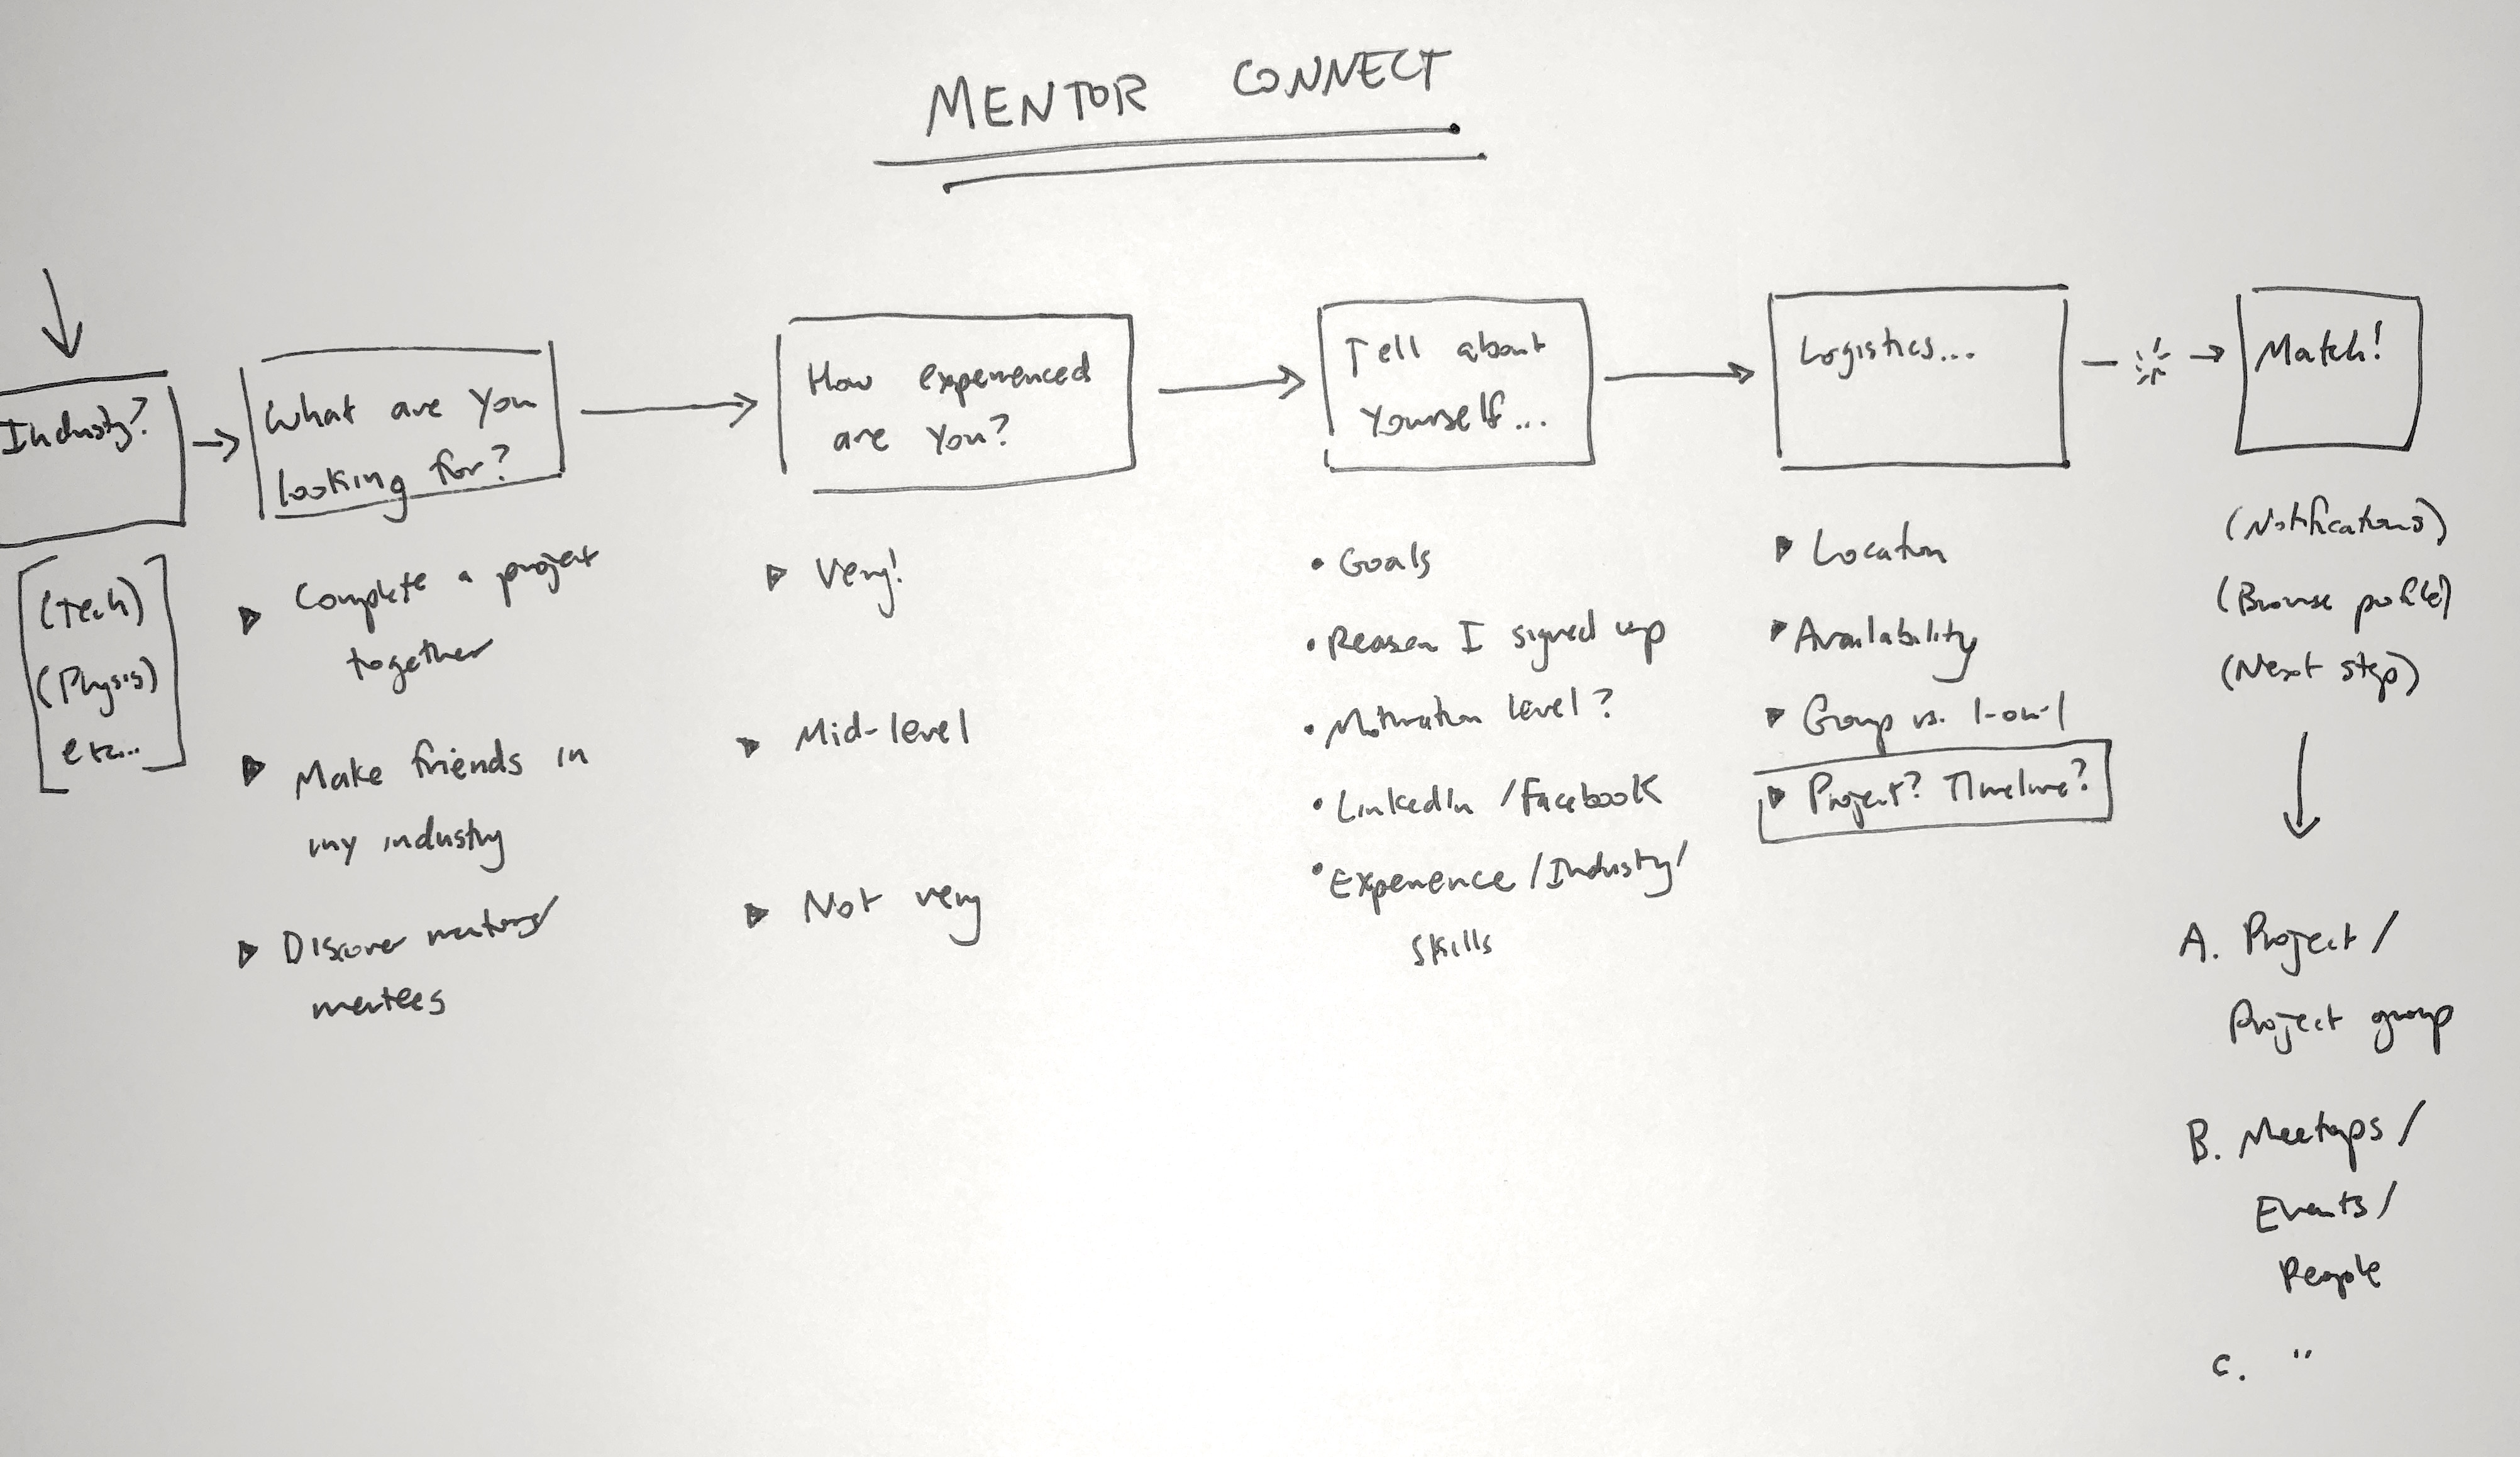 MENTOR CONNECT
Industry?
(Tech)
(Physis)
etc...
What are you
looking for?
Complete a project
together
Make friends in
my industry
Discover mentors/
mentees
How experienced
are you?
Very!
Mid-level
Not very
Tell about
yourself...
• Goals
• Reason I signed up
• Motivation level?
• LinkedIn /Facebook
• Experience /Industry/
skills
Logistics...
Location
Availability
Group vs. 1-on-1
Project? Timeline?
Match!
(Notifications)
(Browse profile)
(Next step)
A. Project /
Project group
B. Meetups /
Events /
People
C. "